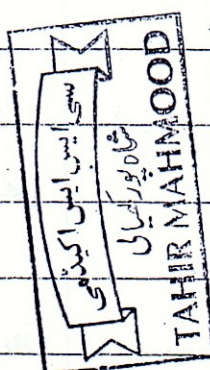 سی ایس ایس اکیڈمی
شاہ پور کیمالی
TAHIR MAHMOOD